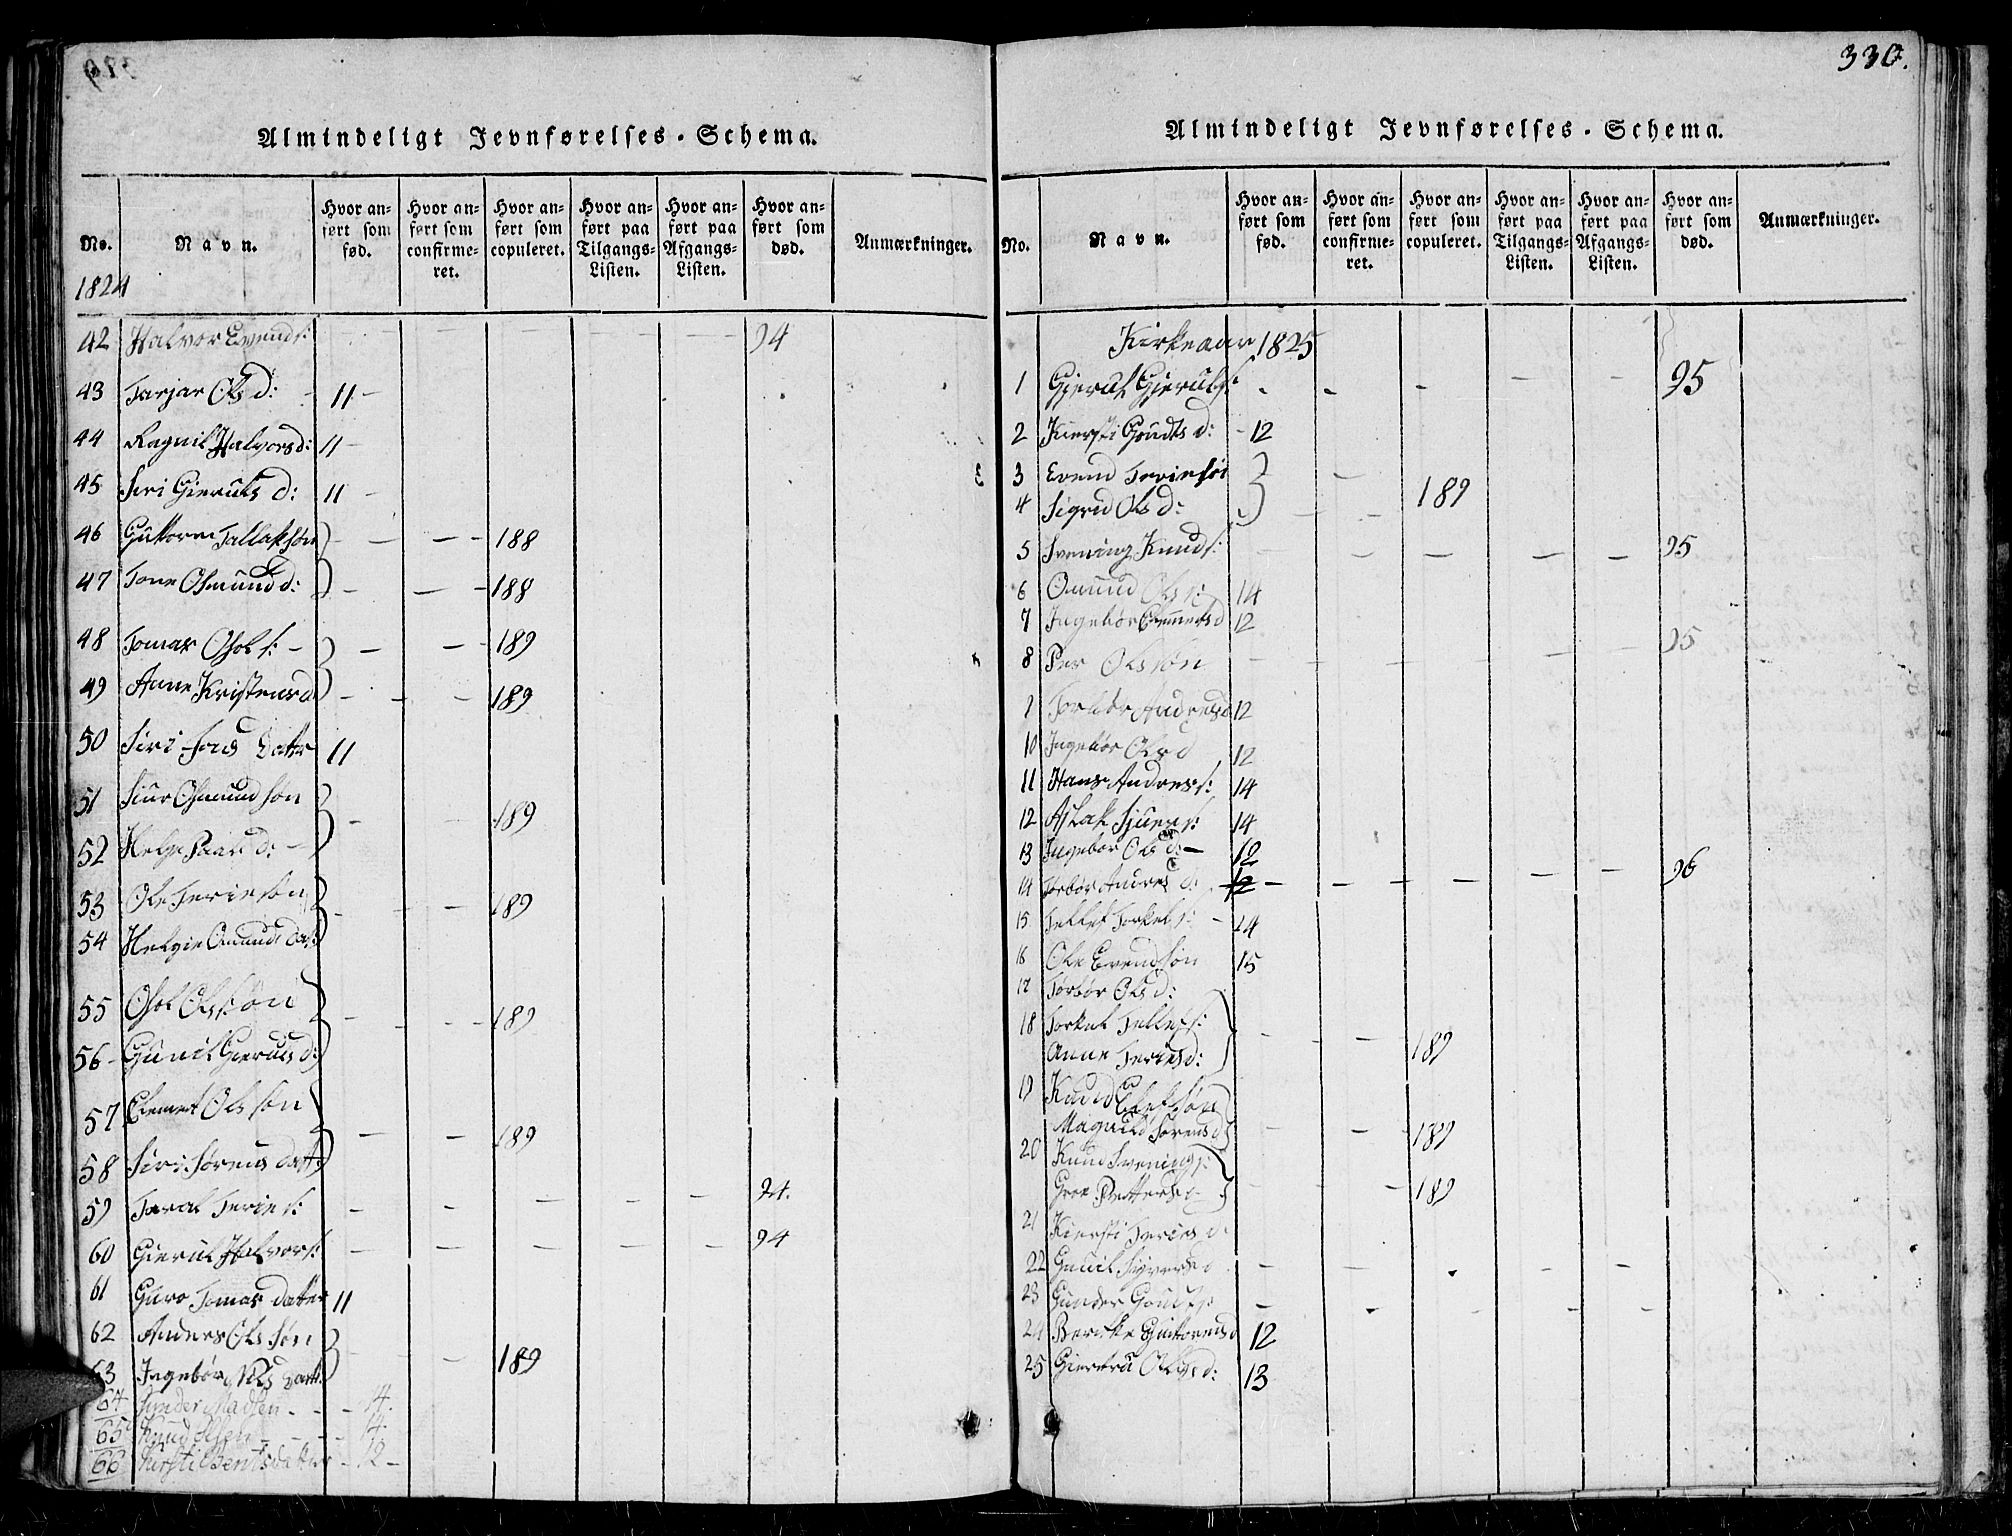 Almindeligt Jevnførelses-Schema.
No. Navn. Hvor anført som fød. Hvor anført som confirmeret. Hvor anført som copuleret. Hvor anført paa Tilgangs-Listen. Hvor anført paa Afgangs-Listen. Hvor anført som død. Anmærkninger.
1824
42 Halvor Evends: 94
43 Tarjar Ols d: 11
44 Ragnil Halvorsd: 11
45 Siri Gieruls d: 11
46 Guttorm Tallaksøn 188
47 Tone Osmund d: 188
48 Tomas Osols: 189
49 Anne Kristensd 189
50 Siri Datter 11
51 Siur Osmundsøn 189
52 Helge d:
53 Ole Teriesøn 189
54 Helgie Omunds
55 Osol Olssøn 189
56 Gunil Gieruls d:
57 Clemet Olssøn 189
58 Siri Sørens datt:
59 Taral Teries: 94.
60 Gierul Halvors: 94
61 Guro Tomas datter 11
62 Anders Olssøn 189
63 Ingebør Nils Datt:
64 Madsen 14.
65 Knud Olsen 14.
66 Kirsti Bentsdatter 12
330.
Almindeligt Jevnførelses-Schema.
No. Navn. Hvor anført som fød. Hvor anført som confirmeret. Hvor anført som copuleret. Hvor anført paa Tilgangs-Listen. Hvor anført paa Afgangs-Listen. Hvor anført som død. Anmærkninger.
Kirkeaar 1825
1 Gjerul Gjeruls: 95
2 Kiersti d: 12
3 Evend Teriesøn
4 Sigrid Ols d: 189
5 Svening Knuds: 95
6 Omund Ols s: 14
7 Ingebør Clemetsd 12
8 Per Olssøn 95
9 Torbør Andresd 12
10 Ingebør Ols d 12
11 Hans Andress: 14
12 Aslak Sjurs s: 14
13 Ingebor Ols d: 12
14 Torbør Andres d: 12 96
15 Tellef Torkels: 14
16 Ole Evendsøn 15
17 Torbør Ols d:
18 Torkel Tellefs: 189
Anne Teriesd:
19 Knud søn
Magnild Sørensd 189
20 Knud Svenings:
Groe Pettersd 189
21 Kiersti Teries d:
22 Gunil Siversd
23 Gunder
24 Guttormsd 12
25 Giertru Ols d: 13